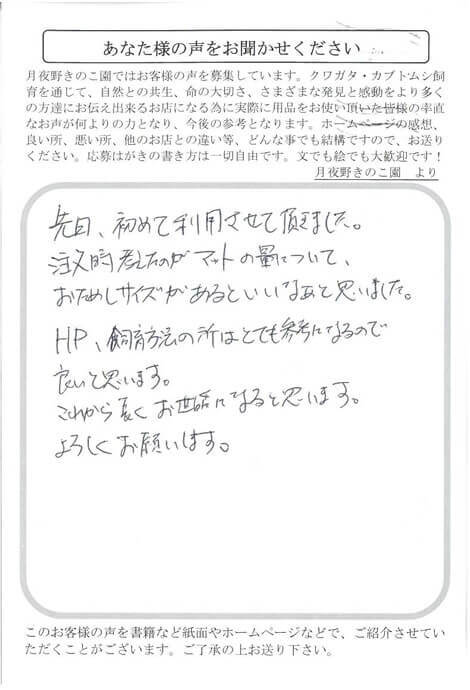 あなた様の声をお聞かせください
月夜野きのこ園ではお客様の声を募集しています。クワガタ・カブトムシ飼
育を通じて、自然との共生、命の大切さ、さまざまな発見と感動をより多く
の方達にお伝え出来るお店になる為に実際に用品をお使い頂いた皆様の率直
なお声が何よりの力となり、今後の参考となります。ホームページの感想、
良い所、悪い所、他のお店との違い等、どんな事でも結構ですので、お送り
ください。応募はがきの書き方は一切自由です。文でも絵でも大歓迎です！
月夜野きのこ園　より
先日、初めて利用させて頂きました。
注文時考えたのが マットの量について、
おためしサイズがあるといいなぁと思いました。
HP、飼育方法の所はとても参考になるので
良いと思います。
これから長くお世話になると思います。
よろしくお願いします。
このお客様の声を書籍など紙面やホームページなどで、ご紹介させてい
ただくことがございます。ご了承の上お送り下さい。